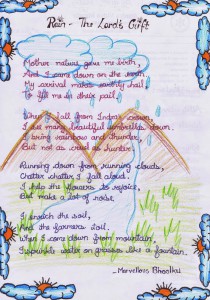 Rain - The Lord's Gift
Mother nature gave me birth,
And I came down on the earth
My arrival makes society hail
To fill me in their pail.
When I fall from Indra's crown,
I see many beautiful umbrella's down.
I bring rainbow and thunder,
But not as cruel as hunter.
Running down from running clouds,
Chatter chatter, I fall aloud.
I help the flowers to rejoice,
But make a lot of noise.
I enrich the soil,
And the farmers toil.
When I come down from mountain,
I sprinkle water on grasses like a fountain.
- Marvellous Bhoolku